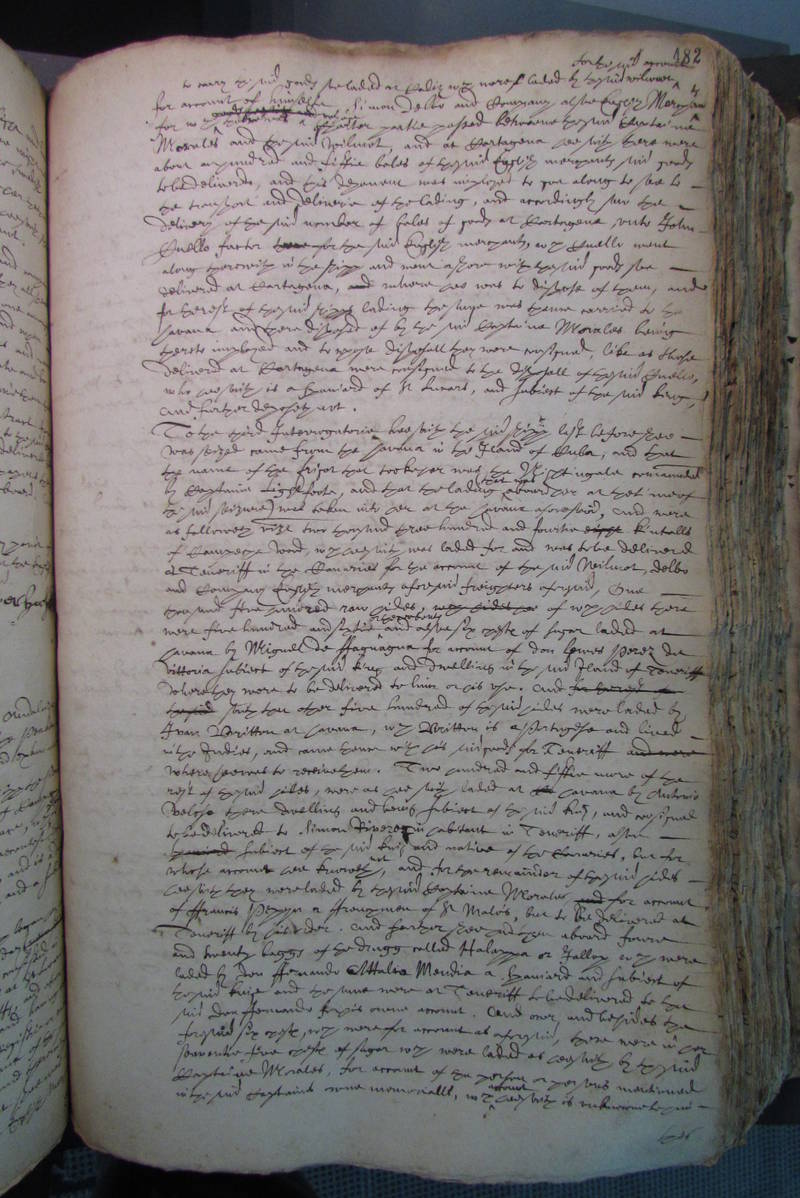 182
for the said account
to carry the said goods shee laded at Cadiz wch were laded by the said Wilmot
for account of himselfe, Simon Delbo and Company all the English Merchants
for wch a charter partie passed betweene the said Captaine
Morales and the said Wilmot, and at Cartagena hee saith there were
about an hundred and fiftie bales of the said English merchants said goods
to bee delivered, and this deponent was imployed to goe along to see to
the transport and deliverie of the lading, and accordingly saw the
delivery of the said number of bales of goods at Cartagena unto John
Cuello factor for the said English merchants, wch Cuello went
along therewith in the shipp and went ashore with the said goods soe
delivered at Cartagena, and where hee was to dispose of them, and
the rest of the said shipps lading the same was thence carried to the
Havana and there disposed of by the said Captaine Morales being
thereto imployed and to whose disposall they were consigned, like as those
delivered at Cartagena were consigned to the disposall of the said Cuello,
who hee saith is a Spaniard of St Lucars, and subject of the said king,
and further deposeth not.
To the third Interrogatorie hee saith the said shipp last before shee
was seized came from the Havana in the Iland of Cuba, and that
the name of the frigot that tooke her was the Nightingale commanded
by Captaine Lightfoote, and that the lading that was aboard her at that
the said seizure was taken into her at the Havana aforesaid, and were
as followeth vizt two thousand three hundred and fourtie kintalls
of Campeche wood, wch hee saith was laded for and was to be delivered
at Teneriff in the Canaries for the account of the said Wilmot, Delbo
and Company English merchants aforesaid freighters aforesaid, One
thousand five hundred raw hides, of wch hides there
were five hundred and sixtie and alsoe six chests of sugar laded at
Havana by Miguel de for account of don Lewes Perez de
Vittoria subject of the said king and dwelling in the said Iland of Teneriff
where they were to be delivered to him or his use. And
saith that other five hundred of the said hides were laded by
Juan Britton at Havana, wch Britton is a Portuguese and lived
in the Indies, and came thence with his said goods for Teneriff
where hee went to receive them. Two hundred and fiftie more of the
rest of the said hides, were as hee saith laded at Havana by Antonio
Veloso there dwelling and being subject of the said king, and consigned
to bee delivered to Simon Rivero inhabitant in Teneriff, alsoe
subject of the said king and native of the Canaries, but for
whose account hee knoweth not, and for the remainder of the said hides
hee saith they were laded by the said Captaine Morales for account
of Francis a frenchman of St Malos, but to be delivered at
Teneriff by his order. And further shee had then aboard foure
and twenty baggs of the drugg called Halappa or Jallop wch were
laded by Don Fernando Mendia a Spaniard and subject of
the said king and the same were at Teneriff to bee delivered to the
said Don Fernando for his owne account. And over and besides the
foresaid six chests, wch were for account as aforesaid, there were in her
seaventie five chests of sugar wch were laded as hee saith by the said
Captaine Morales, for account of the person or persons mentioned
in the said Captains owne memoriall, wch account hee saith is unknowne to him